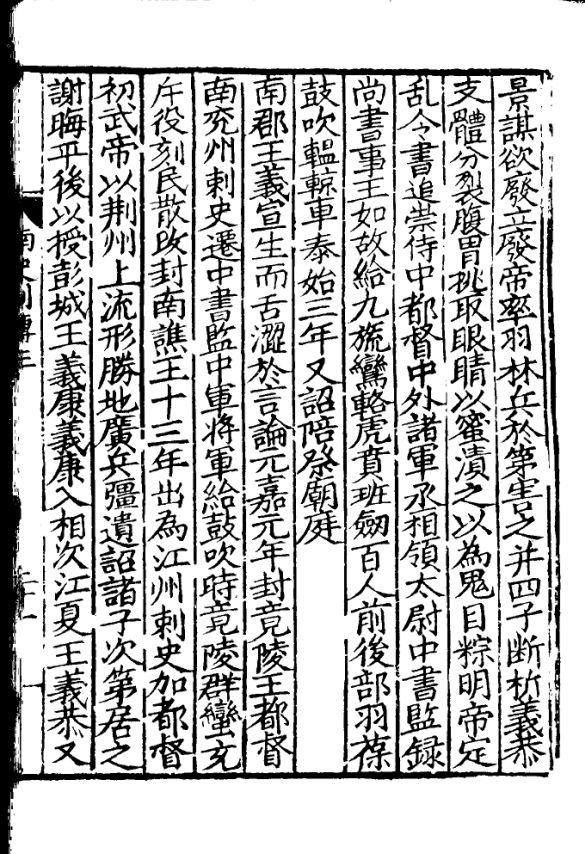 景謀欲廢立廢帝率羽林兵於第害之并四子斷析義恭
支體分裂腹胃挑取眼睛以蜜漬之以為鬼目粽明帝定
乱令書追崇侍中都督中外諸軍丞相領太尉中書監録
尚書事王如故給九旒鸞輅虎賁班劒百人前後部羽葆
鼓吹轀輬車泰始三年又詔陪祭廟庭
南郡王義宣生而舌澀於言論元嘉元年封竟陵王都督
南兖州刺史遷中書監中軍将軍給鼓吹時竟陵群蠻充
斥役刻民散改封南譙王十三年出為江州刺史加都督
初武帝以荆州上流形勝地廣兵彊遺詔諸子次第居之
謝晦平後以授彭城王義康義康入相次江夏王義恭又
南史列傳三